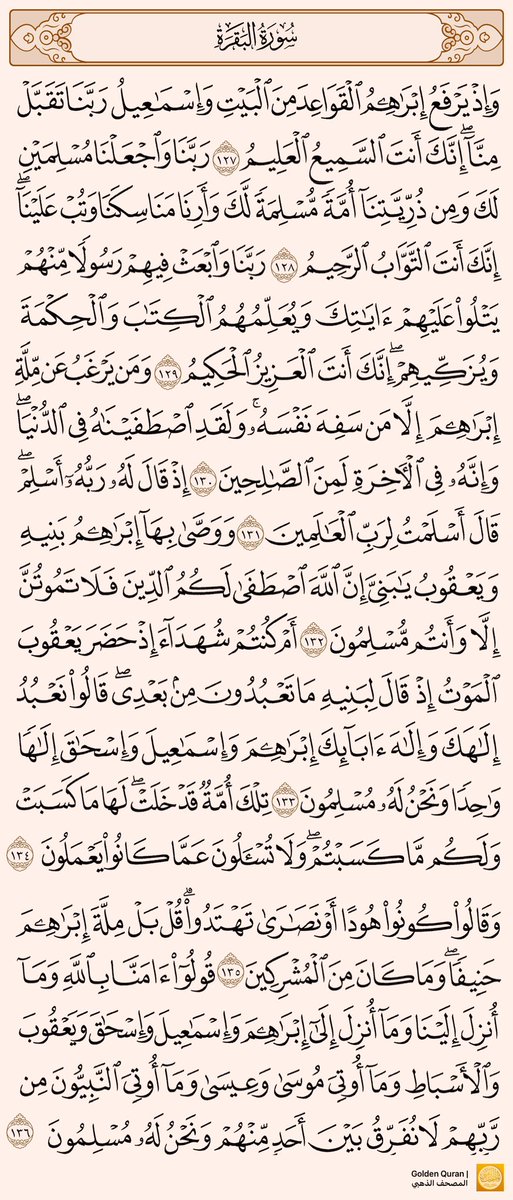 سُورَةُ البَقَرَةِ
وَإِذۡ يَرۡفَعُ إِبۡرَٰهِـۧمُ ٱلۡقَوَاعِدَ مِنَ ٱلۡبَيۡتِ وَإِسۡمَٰعِيلُ رَبَّنَا تَقَبَّلۡ
مِنَّآۖ إِنَّكَ أَنتَ ٱلسَّمِيعُ ٱلۡعَلِيمُ ١٢٧ رَبَّنَا وَٱجۡعَلۡنَا مُسۡلِمَيۡنِ
لَكَ وَمِن ذُرِّيَّتِنَآ أُمَّةٗ مُّسۡلِمَةٗ لَّكَ وَأَرِنَا مَنَاسِكَنَا وَتُبۡ عَلَيۡنَآۖ
إِنَّكَ أَنتَ ٱلتَّوَّابُ ٱلرَّحِيمُ ١٢٨ رَبَّنَا وَٱبۡعَثۡ فِيهِمۡ رَسُولٗا مِّنۡهُمۡ
يَتۡلُواْ عَلَيۡهِمۡ ءَايَٰتِكَ وَيُعَلِّمُهُمُ ٱلۡكِتَٰبَ وَٱلۡحِكۡمَةَ
وَيُزَكِّيهِمۡۖ إِنَّكَ أَنتَ ٱلۡعَزِيزُ ٱلۡحَكِيمُ ١٢٩ وَمَن يَرۡغَبُ عَن مِّلَّةِ
إِبۡرَٰهِـۧمَ إِلَّا مَن سَفِهَ نَفۡسَهُۥۚ وَلَقَدِ ٱصۡطَفَيۡنَٰهُ فِي ٱلدُّنۡيَاۖ
وَإِنَّهُۥ فِي ٱلۡأٓخِرَةِ لَمِنَ ٱلصَّٰلِحِينَ ١٣٠ إِذۡ قَالَ لَهُۥ رَبُّهُۥٓ أَسۡلِمۡۖ
قَالَ أَسۡلَمۡتُ لِرَبِّ ٱلۡعَٰلَمِينَ ١٣١ وَوَصَّىٰ بِهَآ إِبۡرَٰهِـۧمُ بَنِيهِ
وَيَعۡقُوبُ يَٰبَنِيَّ إِنَّ ٱللَّهَ ٱصۡطَفَىٰ لَكُمُ ٱلدِّينَ فَلَا تَمُوتُنَّ
إِلَّا وَأَنتُم مُّسۡلِمُونَ ١٣٢ أَمۡ كُنتُمۡ شُهَدَآءَ إِذۡ حَضَرَ يَعۡقُوبَ
ٱلۡمَوۡتُ إِذۡ قَالَ لِبَنِيهِ مَا تَعۡبُدُونَ مِنۢ بَعۡدِيۖ قَالُواْ نَعۡبُدُ
إِلَٰهَكَ وَإِلَٰهَ ءَابَآئِكَ إِبۡرَٰهِـۧمَ وَإِسۡمَٰعِيلَ وَإِسۡحَٰقَ إِلَٰهٗا
وَٰحِدٗا وَنَحۡنُ لَهُۥ مُسۡلِمُونَ ١٣٣ تِلۡكَ أُمَّةٞ قَدۡ خَلَتۡۖ لَهَا مَا كَسَبَتۡ
وَلَكُم مَّا كَسَبۡتُمۡۖ وَلَا تُسۡـَٔلُونَ عَمَّا كَانُواْ يَعۡمَلُونَ ١٣٤
وَقَالُواْ كُونُواْ هُودًا أَوۡ نَصَٰرَىٰ تَهۡتَدُواْۗ قُلۡ بَلۡ مِلَّةَ إِبۡرَٰهِـۧمَ
حَنِيفٗاۖ وَمَا كَانَ مِنَ ٱلۡمُشۡرِكِينَ ١٣٥ قُولُوٓاْ ءَامَنَّا بِٱللَّهِ وَمَآ
أُنزِلَ إِلَيۡنَا وَمَآ أُنزِلَ إِلَىٰٓ إِبۡرَٰهِـۧمَ وَإِسۡمَٰعِيلَ وَإِسۡحَٰقَ وَيَعۡقُوبَ
وَٱلۡأَسۡبَاطِ وَمَآ أُوتِيَ مُوسَىٰ وَعِيسَىٰ وَمَآ أُوتِيَ ٱلنَّبِيُّونَ مِن
رَّبِّهِمۡ لَا نُفَرِّقُ بَيۡنَ أَحَدٖ مِّنۡهُمۡ وَنَحۡنُ لَهُۥ مُسۡلِمُونَ ١٣٦
Golden Quran |
المصحف الذهبي